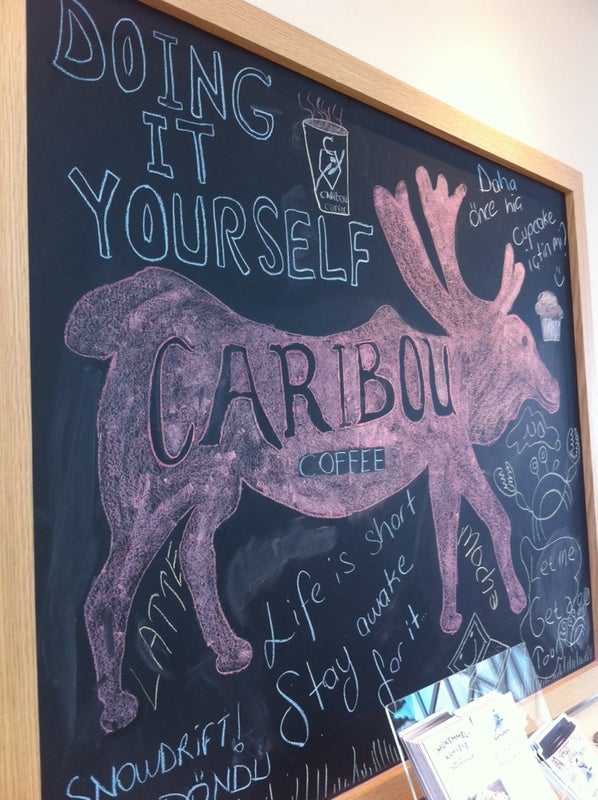 DOING
IT
YOURSELF
CARIBOU
COFFEE
Daha
önce hiç
Cupcake
içtin mi?
CARIBOU
COFFEE
LATTE
Life is short
Stay awake
for it...
Mocha
Let me
Get
SNOWDRIFT!
DÖNDÜ
MÜKEMMEL
KAHVEYE